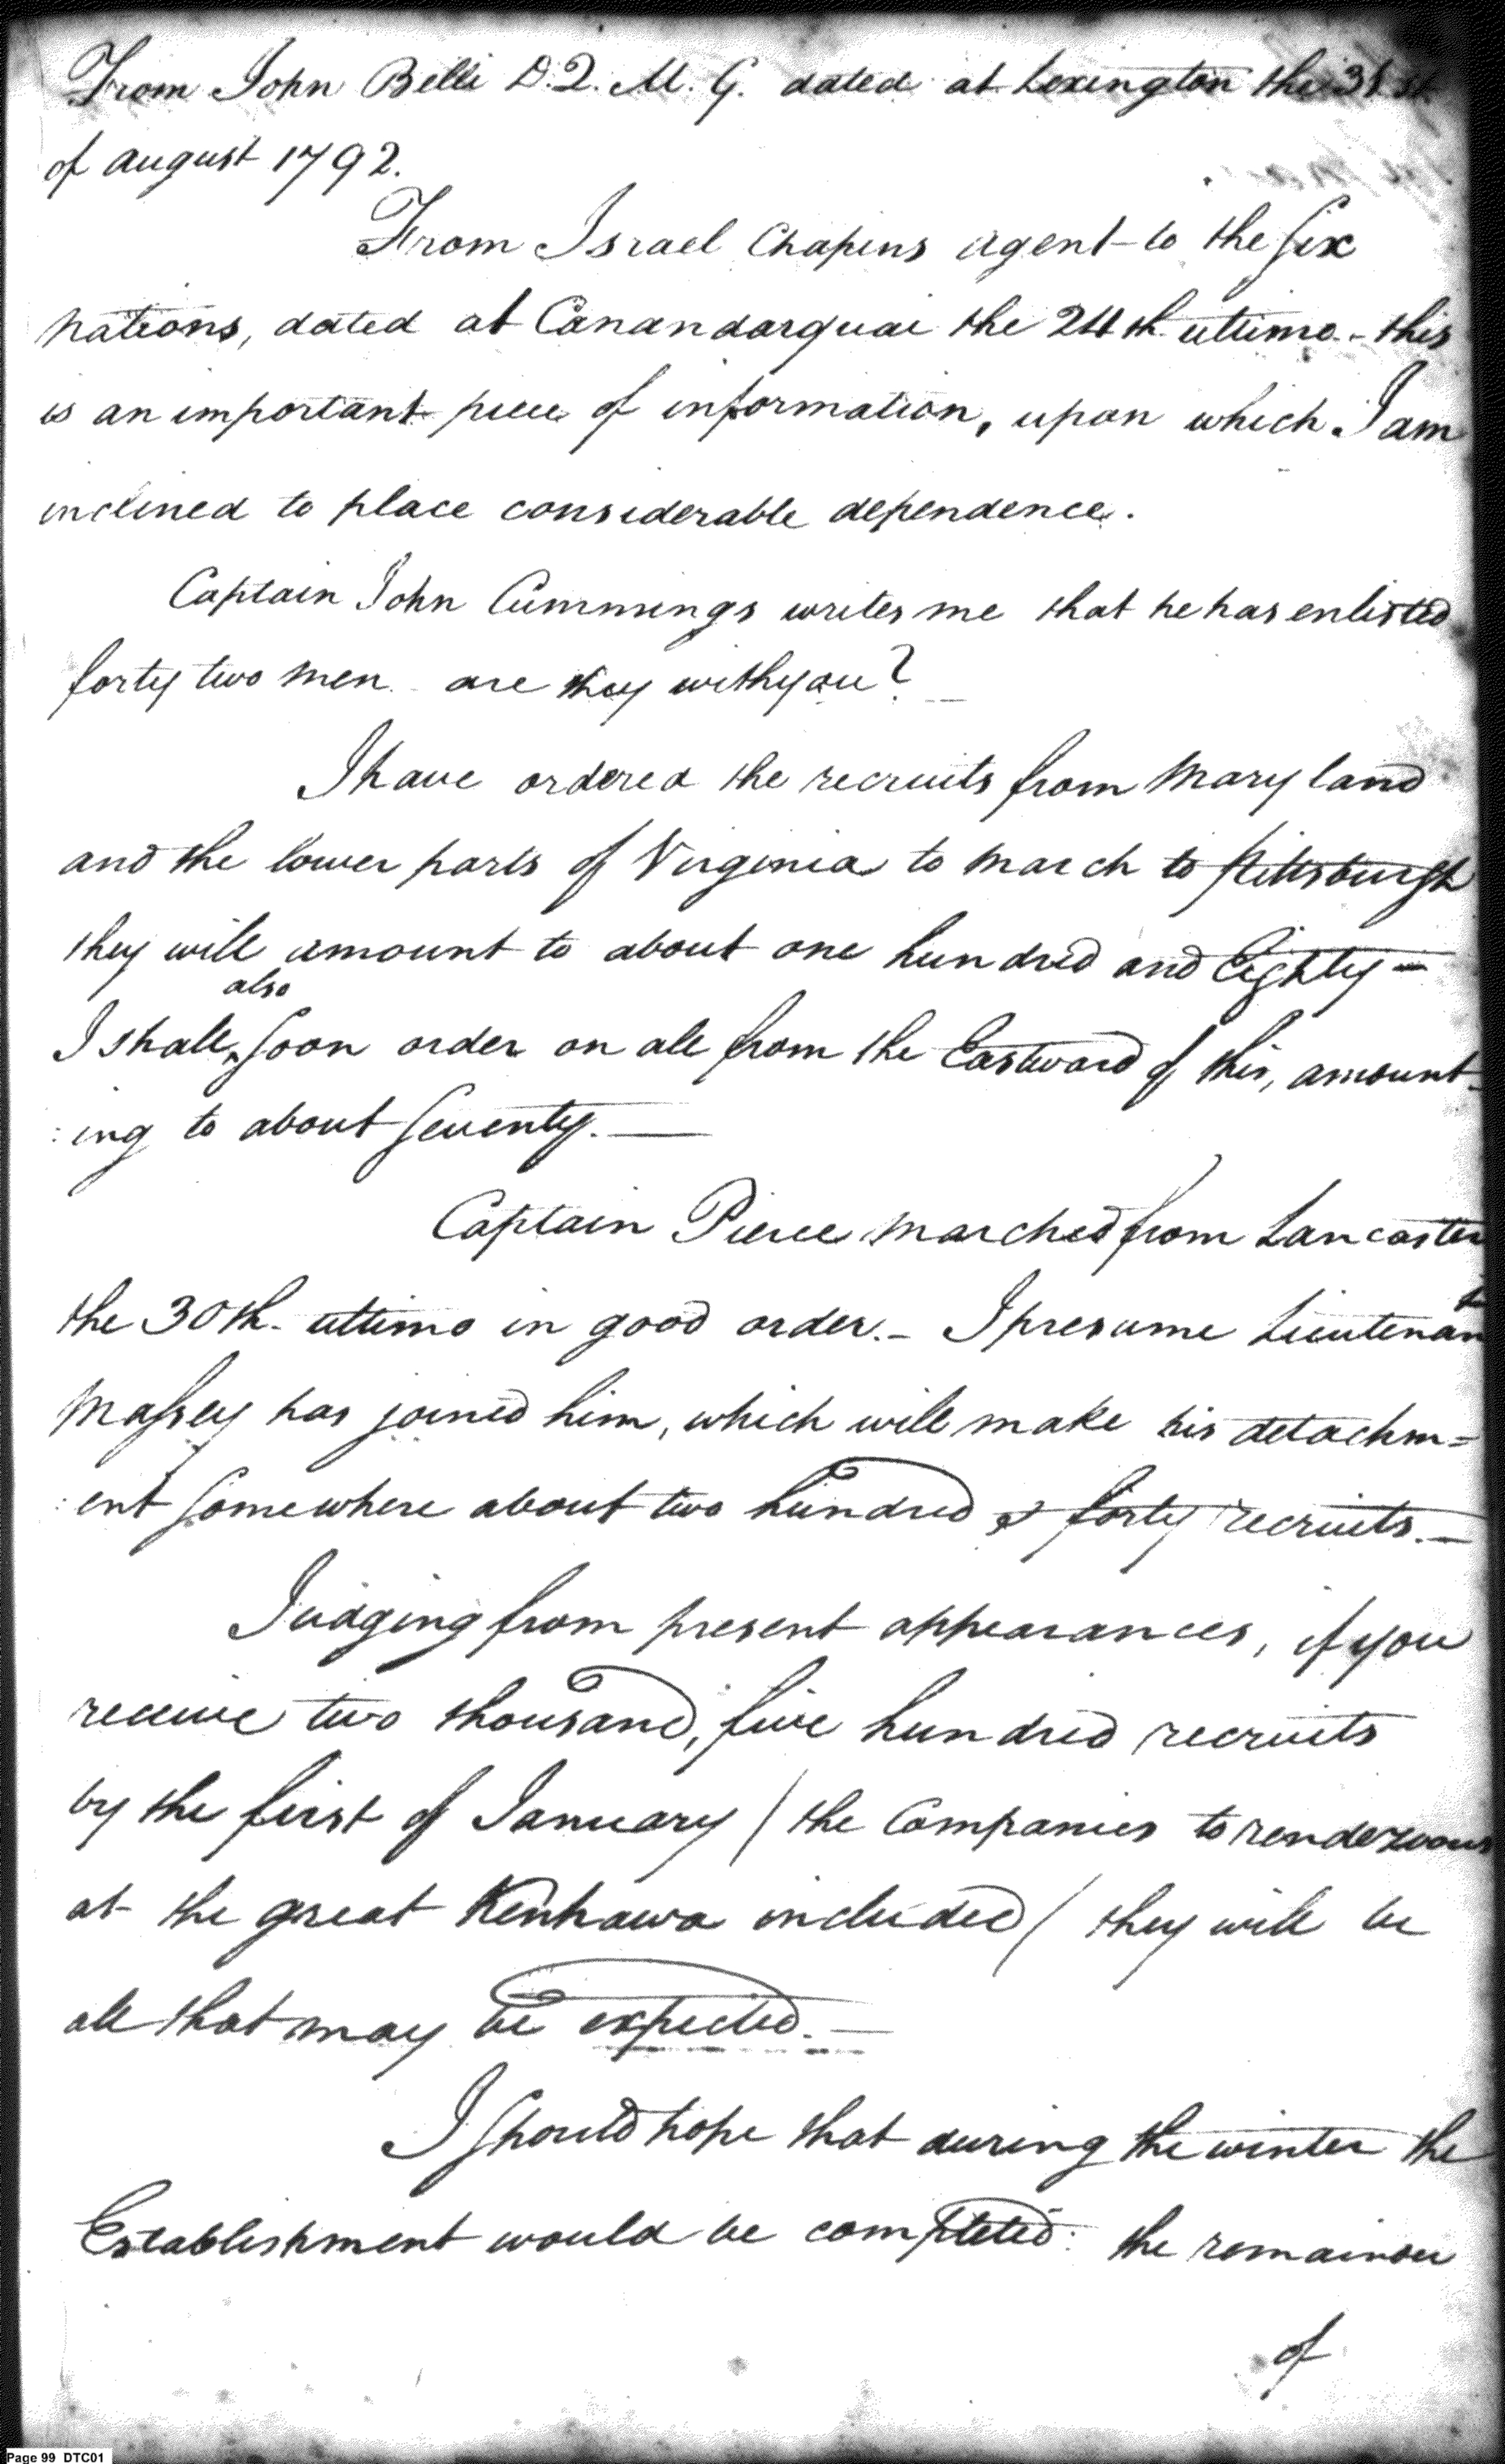 From John Belli D.Q.M.G. dated at Lexington the 31st
of august 1792.
From Israel Chapins agent to the Six
nations, dated at Canandarquai the 24th ultimo - this
is an important piece of information, upon which I am
inclined to place considerable dependence.
Captain John Cummings writes me that he has enlisted
forty two men. are they with you?
I have ordered the recruits from Maryland
and the lower parts of Virginia to march to Pittsburgh
they will amount to about one hundred and Eighty -
also
I shall soon order on all from the Eastward of this, amount-
:ing to about Seventy. —
Captain Pierce marched from Lancaster
the 30th. ultimo in good order. - I presume Lieutenant
Massey has joined him, which will make his detachm=
:ent Somewhere about two hundred & forty recruits. —
Judging from present appearances, if you
receive two thousand, five hundred recruits
by the first of January / the Companies to rendezvous
at the great Kenhawa included / they will be
all that may be expected. —
I Should hope that during the winter the
Establishment would be completed: the remainder
of
Page 99 DTC01